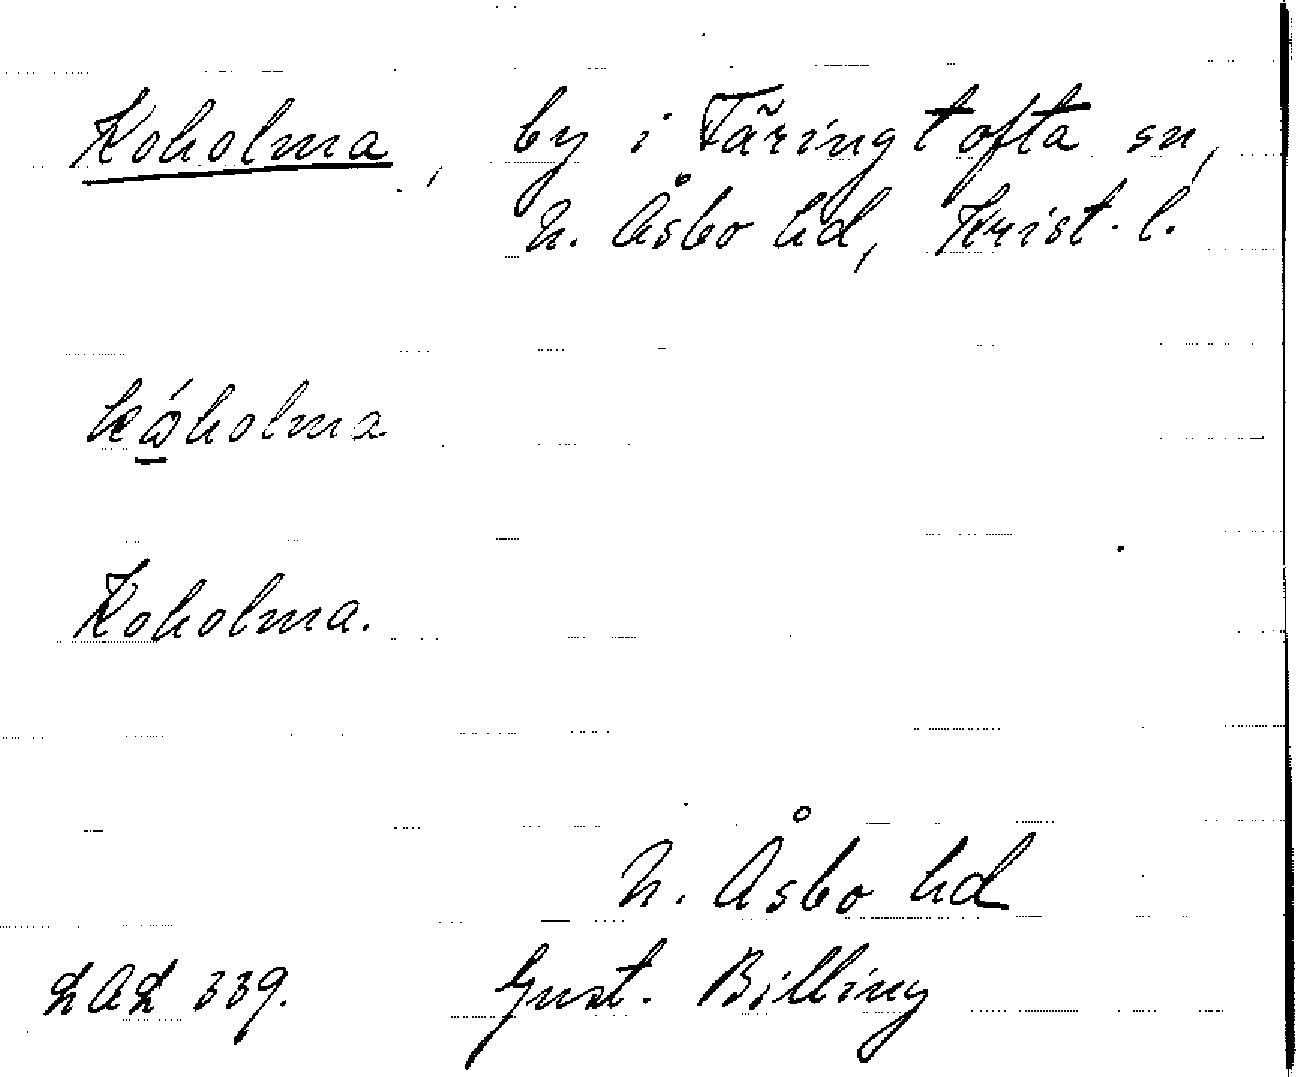 Koholma, by i Färingtofta sn,
N. Åsbo hd, Krist. l.
kóholma
Koholma.
N. Åsbo hd
LAL 339. Gust. Billing